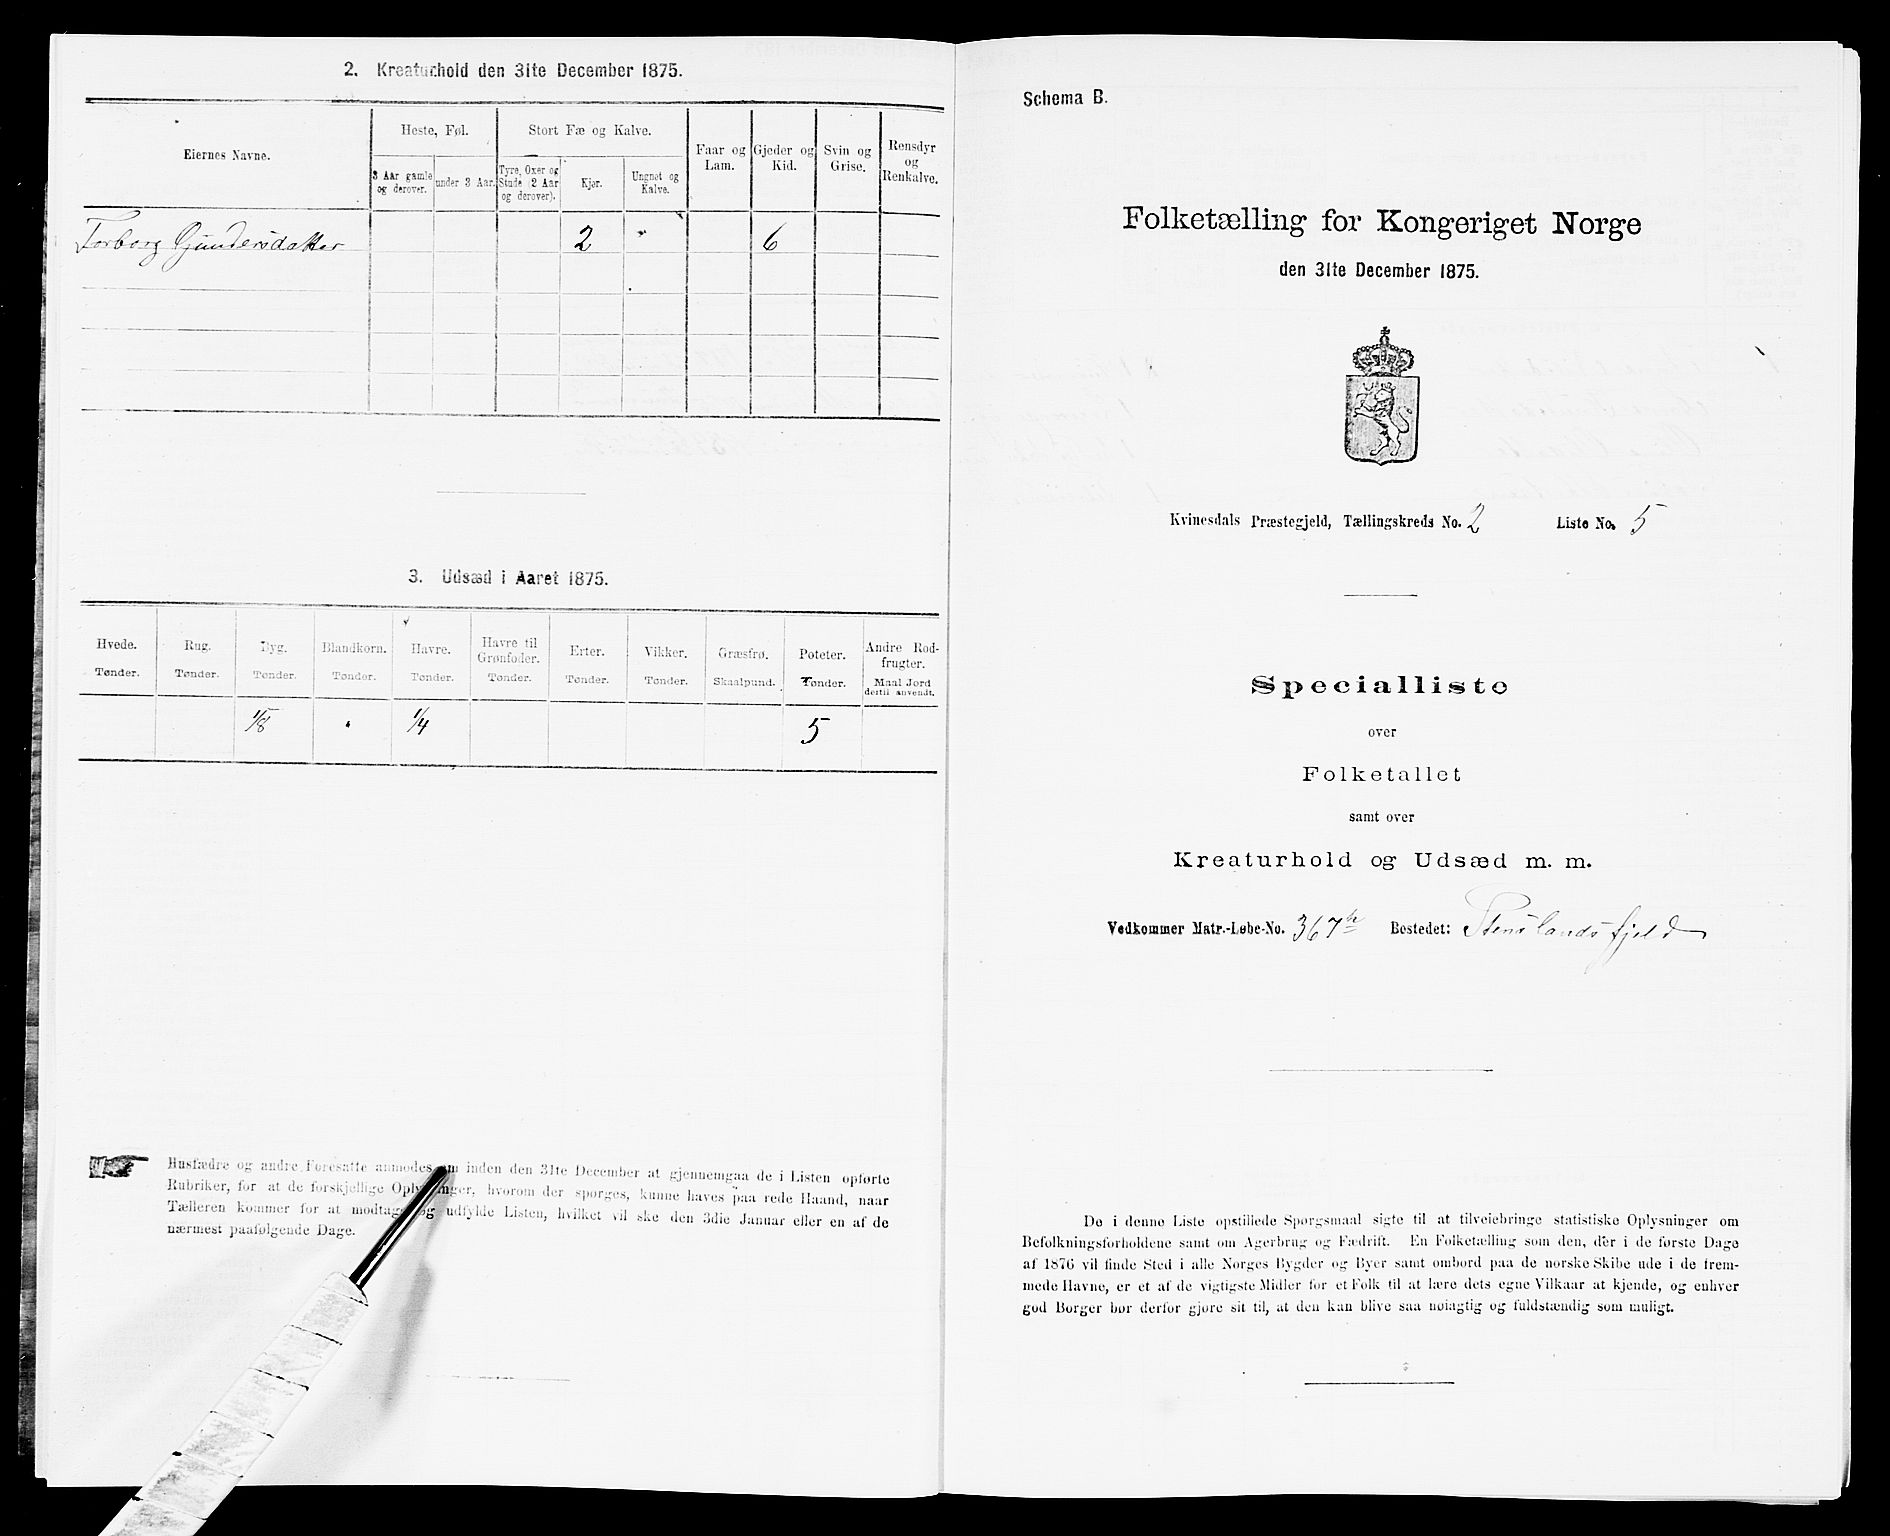 2. Kreaturhold den 31te December 1875.
Eiernes Navne.
Heste, Føl.
Stort Fæ og Kalve.
Faar og
Lam.
Gjeder og
Kid.
Svin og
Grise.
Rensdyr
og
Renkalve.
3 Aar gamle
og derover.
under 3 Aar.
Tyre, Oxer og
Stude (2 Aar
og derover).
Kjør.
Ungnøt og
Kalve.
Torborg Gundersdatter 2 " 6
3. Udsæd i Aaret 1875.
Hvede. Rug. Byg. Blandkorn. Havre. Havre til Grønfoder. Erter. Vikker. Græsfrø. Poteter. Andre Rodfrugter.
Tønder. Tønder. Tønder. Tønder. Tønder. Tønder. Tønder. Tønder. Skaalpund. Tønder. Maal Jord dertil anvendt.
1/8 " 1/4 5
Husfædre og andre Foresatte anmodes om inden den 31te December at gjennemgaa de i Listen opførte
Rubriker, for at de forskjellige Oplysninger, hvorom der spørges, kunne haves paa rede Haand, naar
Tælleren kommer for at modtage og udfylde Listen, hvilket vil ske den 3die Januar eller en af de
nærmest paafølgende Dage.
Schema B.
Folketælling for Kongeriget Norge
den 31te December 1875.
Kvinesdals Præstegjeld, Tællingskreds No. 2 Liste No. 5
Specialliste
over
Folketallet
samt over
Kreaturhold og Udsæd m. m.
Vedkommer Matr.-Løbe-No. 367 Bostedet: Stenslandsfjeld
De i denne Liste opstillede Spørgsmaal sigte til at tilveiebringe statistiske Oplysninger om
Befolkningsforholdene samt om Agerbrug og Fædrift. En Folketælling som den, der i de første Dage
af 1876 vil finde Sted i alle Norges Bygder og Byer samt ombord paa de norske Skibe ude i de frem-
mede Havne, er et af de vigtigste Midler for et Folk til at lære dets egne Vilkaar at kjende, og enhver
god Borger bør derfor gjøre sit til, at den kan blive saa nøiagtig og fuldstændig som muligt.